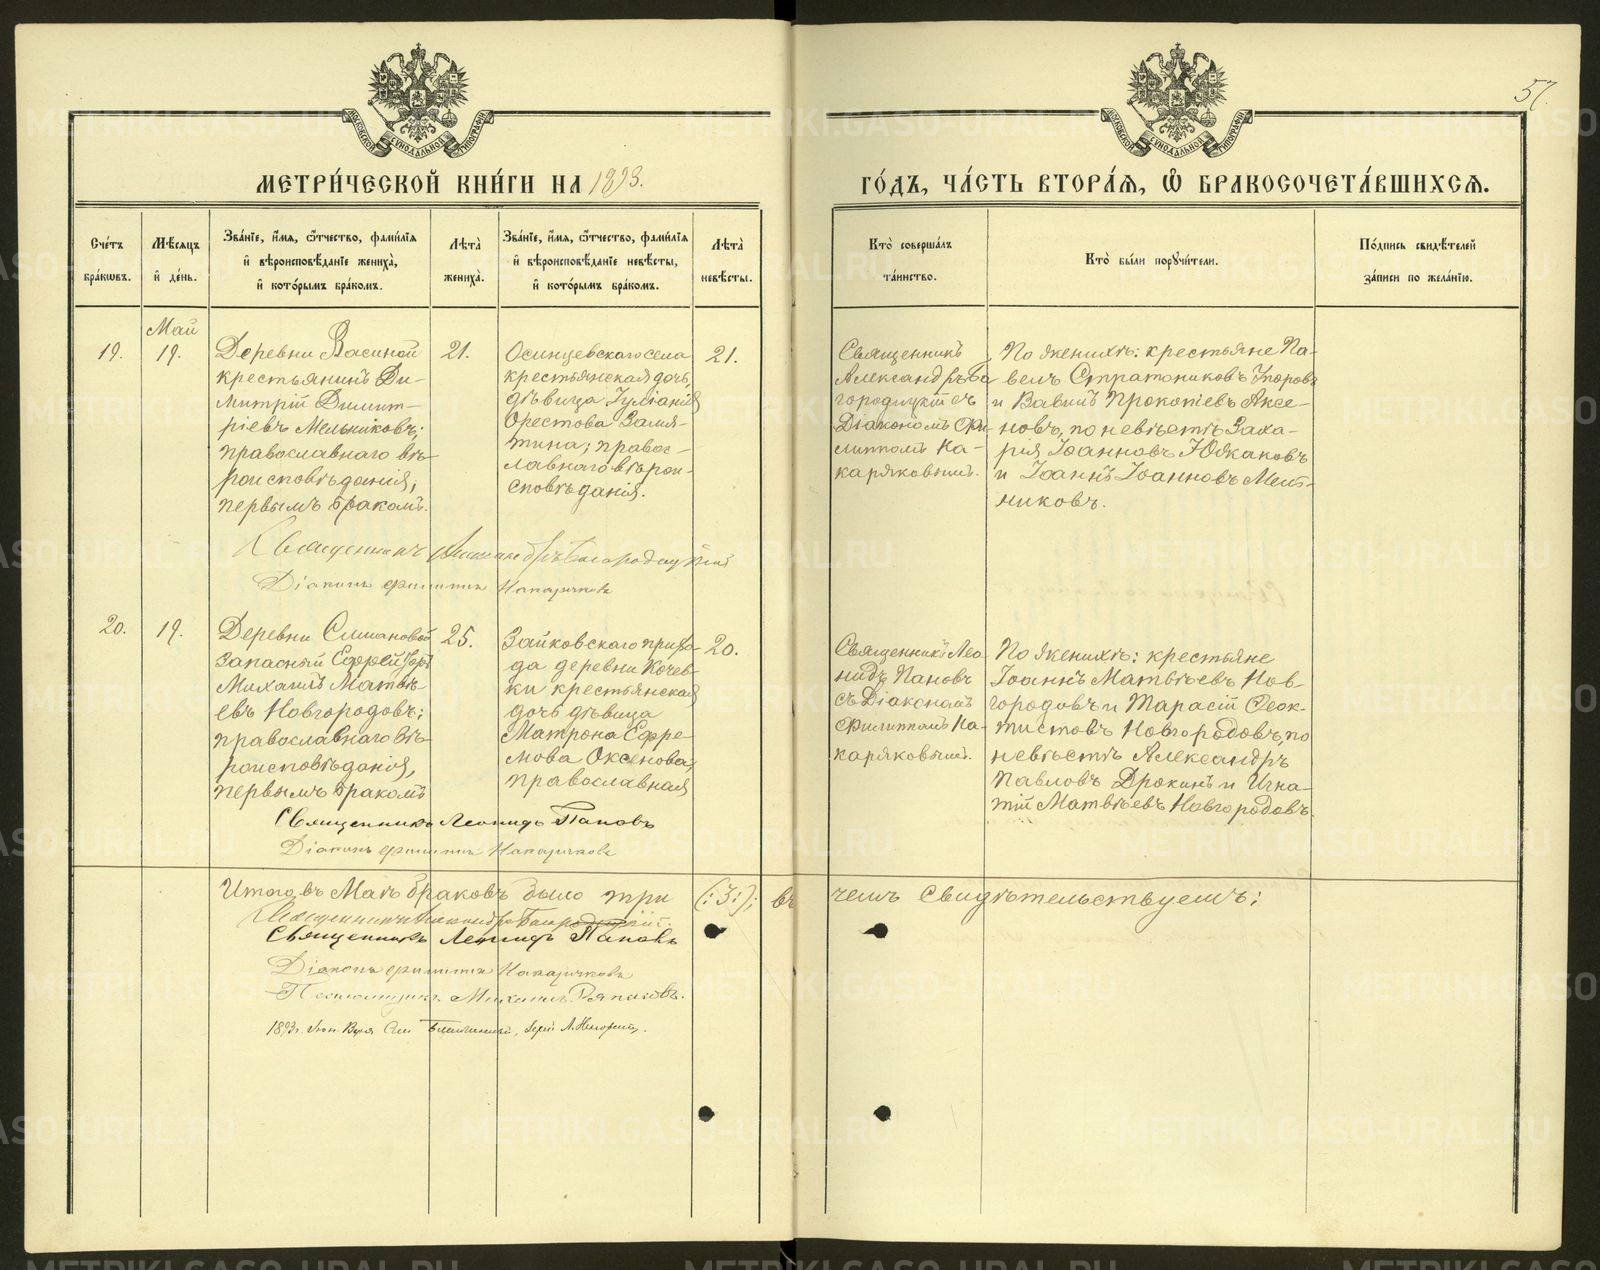 57.
МЕТРИ́ЧЕСКОЙ КНИ́ГИ НА 1893.
ГО́ДЪ, ЧА́СТЬ ВТОРА́Я, Ѿ БРАКОСОЧЕТА́ВШИХСЯ.
Сче́тъ бра́ковъ.
Мѣ́сяцъ и де́нь.
Зва́нїе, и́мя, ѻ҆́тчество, фами́лїя и вѣроисповѣ́данїе жениха̀, и кото́рымъ бра́комъ.
Лѣта̀ жениха̀.
Зва́нїе, и́мя, ѻ҆́тчество, фами́лїя и вѣроисповѣ́данїе невѣ́сты, и кото́рымъ бра́комъ.
Лѣта̀ невѣ́сты.
Кто̀ соверша́лъ та́инство.
Кто̀ бы́ли поручи́тели.
По́дпись свидѣ́телей за́писи по жела́нїю.
Май
19.
19.
Деревни Васиной
крестьянинъ Ди-
митрій Димит-
ріевъ Мельниковъ;
православнаго вѣ-
роисповѣданія,
первымъ бракомъ.
21.
Осинцевскаго села
крестьянская дочь,
дѣвица Іуліанія
Орестова Замя-
тина; правос-
лавнаго вѣрои-
сповѣданія.
21.
Священникъ
Александръ Бо
городицкій съ
Діакономъ Фи-
липпомъ Ка-
каряковымъ.
По женихѣ: крестьяне Па-
велъ Стратониковъ
и Вавилъ Прокопіевъ Аксе-
новъ, по невѣстѣ Заха-
рія Іоанновъ
и Іоаннъ Іоанновъ Мель-
никовъ.
Священникъ Александръ Богородицкій
Діаконъ Филиппъ Какаряковъ
20.
19.
Деревни
запасный Ефрейторъ
Михаилъ Матвѣ-
евъ Новгородовъ;
православнаго вѣ-
роисповѣданія,
первымъ бракомъ
25.
Зайковскаго прихо-
да деревни Кочев-
ки крестьянская
дочь дѣвица
Матрона Ефре
мова Оксенова,
православная
20.
Священникъ Лео
нидъ Пановъ
съ Діакономъ
Филиппомъ Ка-
каряковымъ.
По женихѣ: крестьяне
Іоаннъ Матвѣевъ Нов-
городовъ и Тарасій Ѳеок-
тистовъ Новгородовъ, по
невѣстѣ Александръ
Павловъ Дрокинъ и Игна-
тій Матвѣевъ Новгородовъ.
Священникъ Леонидъ Пановъ
Діаконъ Филиппъ Какаряковъ
Итого въ Маѣ браковъ было три (:3:); въ чемъ свидѣтельствуемъ:
Священникъ Александръ Богородицкій
Священникъ Леонидъ Пановъ
Діаконъ Филиппъ Какаряковъ
Псаломщикъ Михаилъ
METRIKI.GASO-URAL.RU